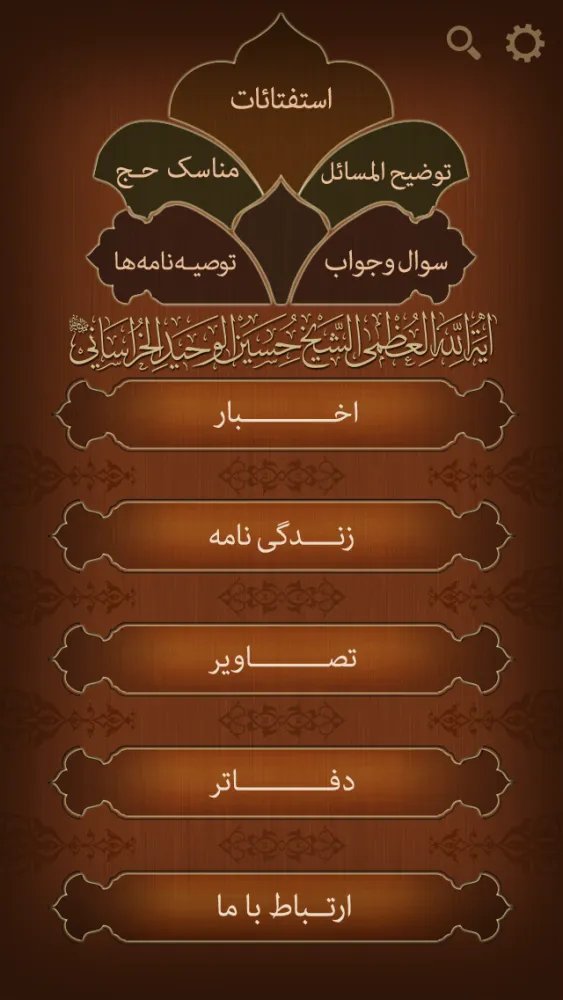 استفتائات
توضیح المسائل
مناسک حج
سوال و جواب
توصیه‌نامه‌ها
آیة اللّٰه العُظمی الشَّیخ حُسَین الوَحید الخُراسانی
اخبار
زندگی نامه
تصاویر
دفاتر
ارتباط با ما